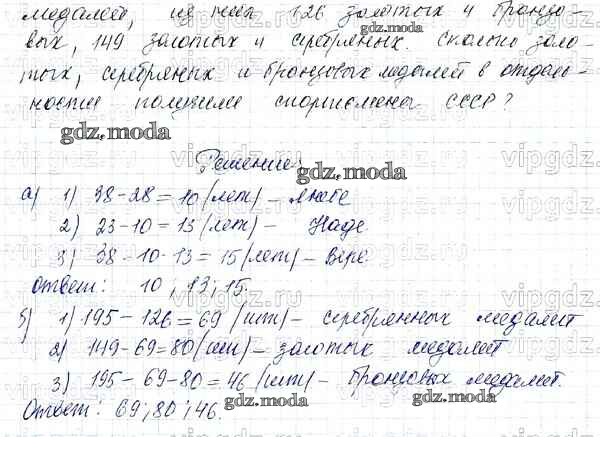 медалей, из них 126 золотых и бронзо-
вых, 149 золотых и серебряных. Сколько золо-
тых, серебряных и бронзовых медалей в отдель-
ности получили спортсмены СССР?
gdz.moda
Решение:
gdz.moda
а) 1) 38-28=10 (лет) - Любе
2) 23-10=13 (лет) - Наде
3) 38-10-13=15 (лет) - Вере.
Ответ: 10; 13; 15.
б) 1) 195-126=69 (шт) - серебрянных медалей
2) 149-69=80 (шт) - золотых медалей
3) 195-69-80=46 (шт) - бронзовых медалей.
Ответ: 69; 80; 46.
gdz.moda
gdz.moda
vipgdz.ru